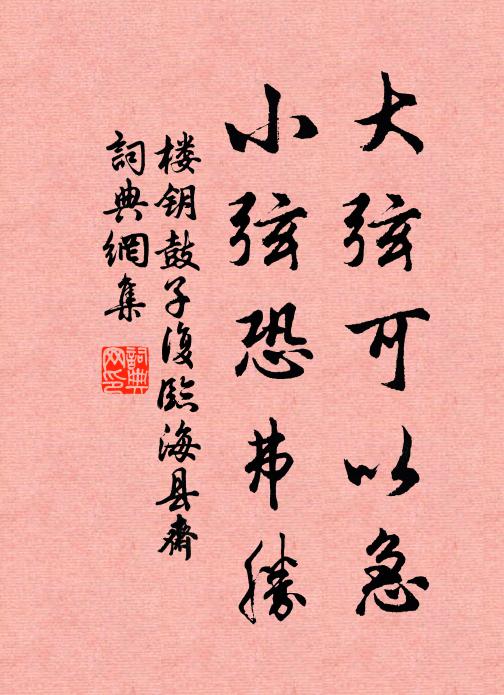 大弦可以急
小弦恐弗勝
楼钥鼓子復臨海县齋
詞典網集
詞典網印